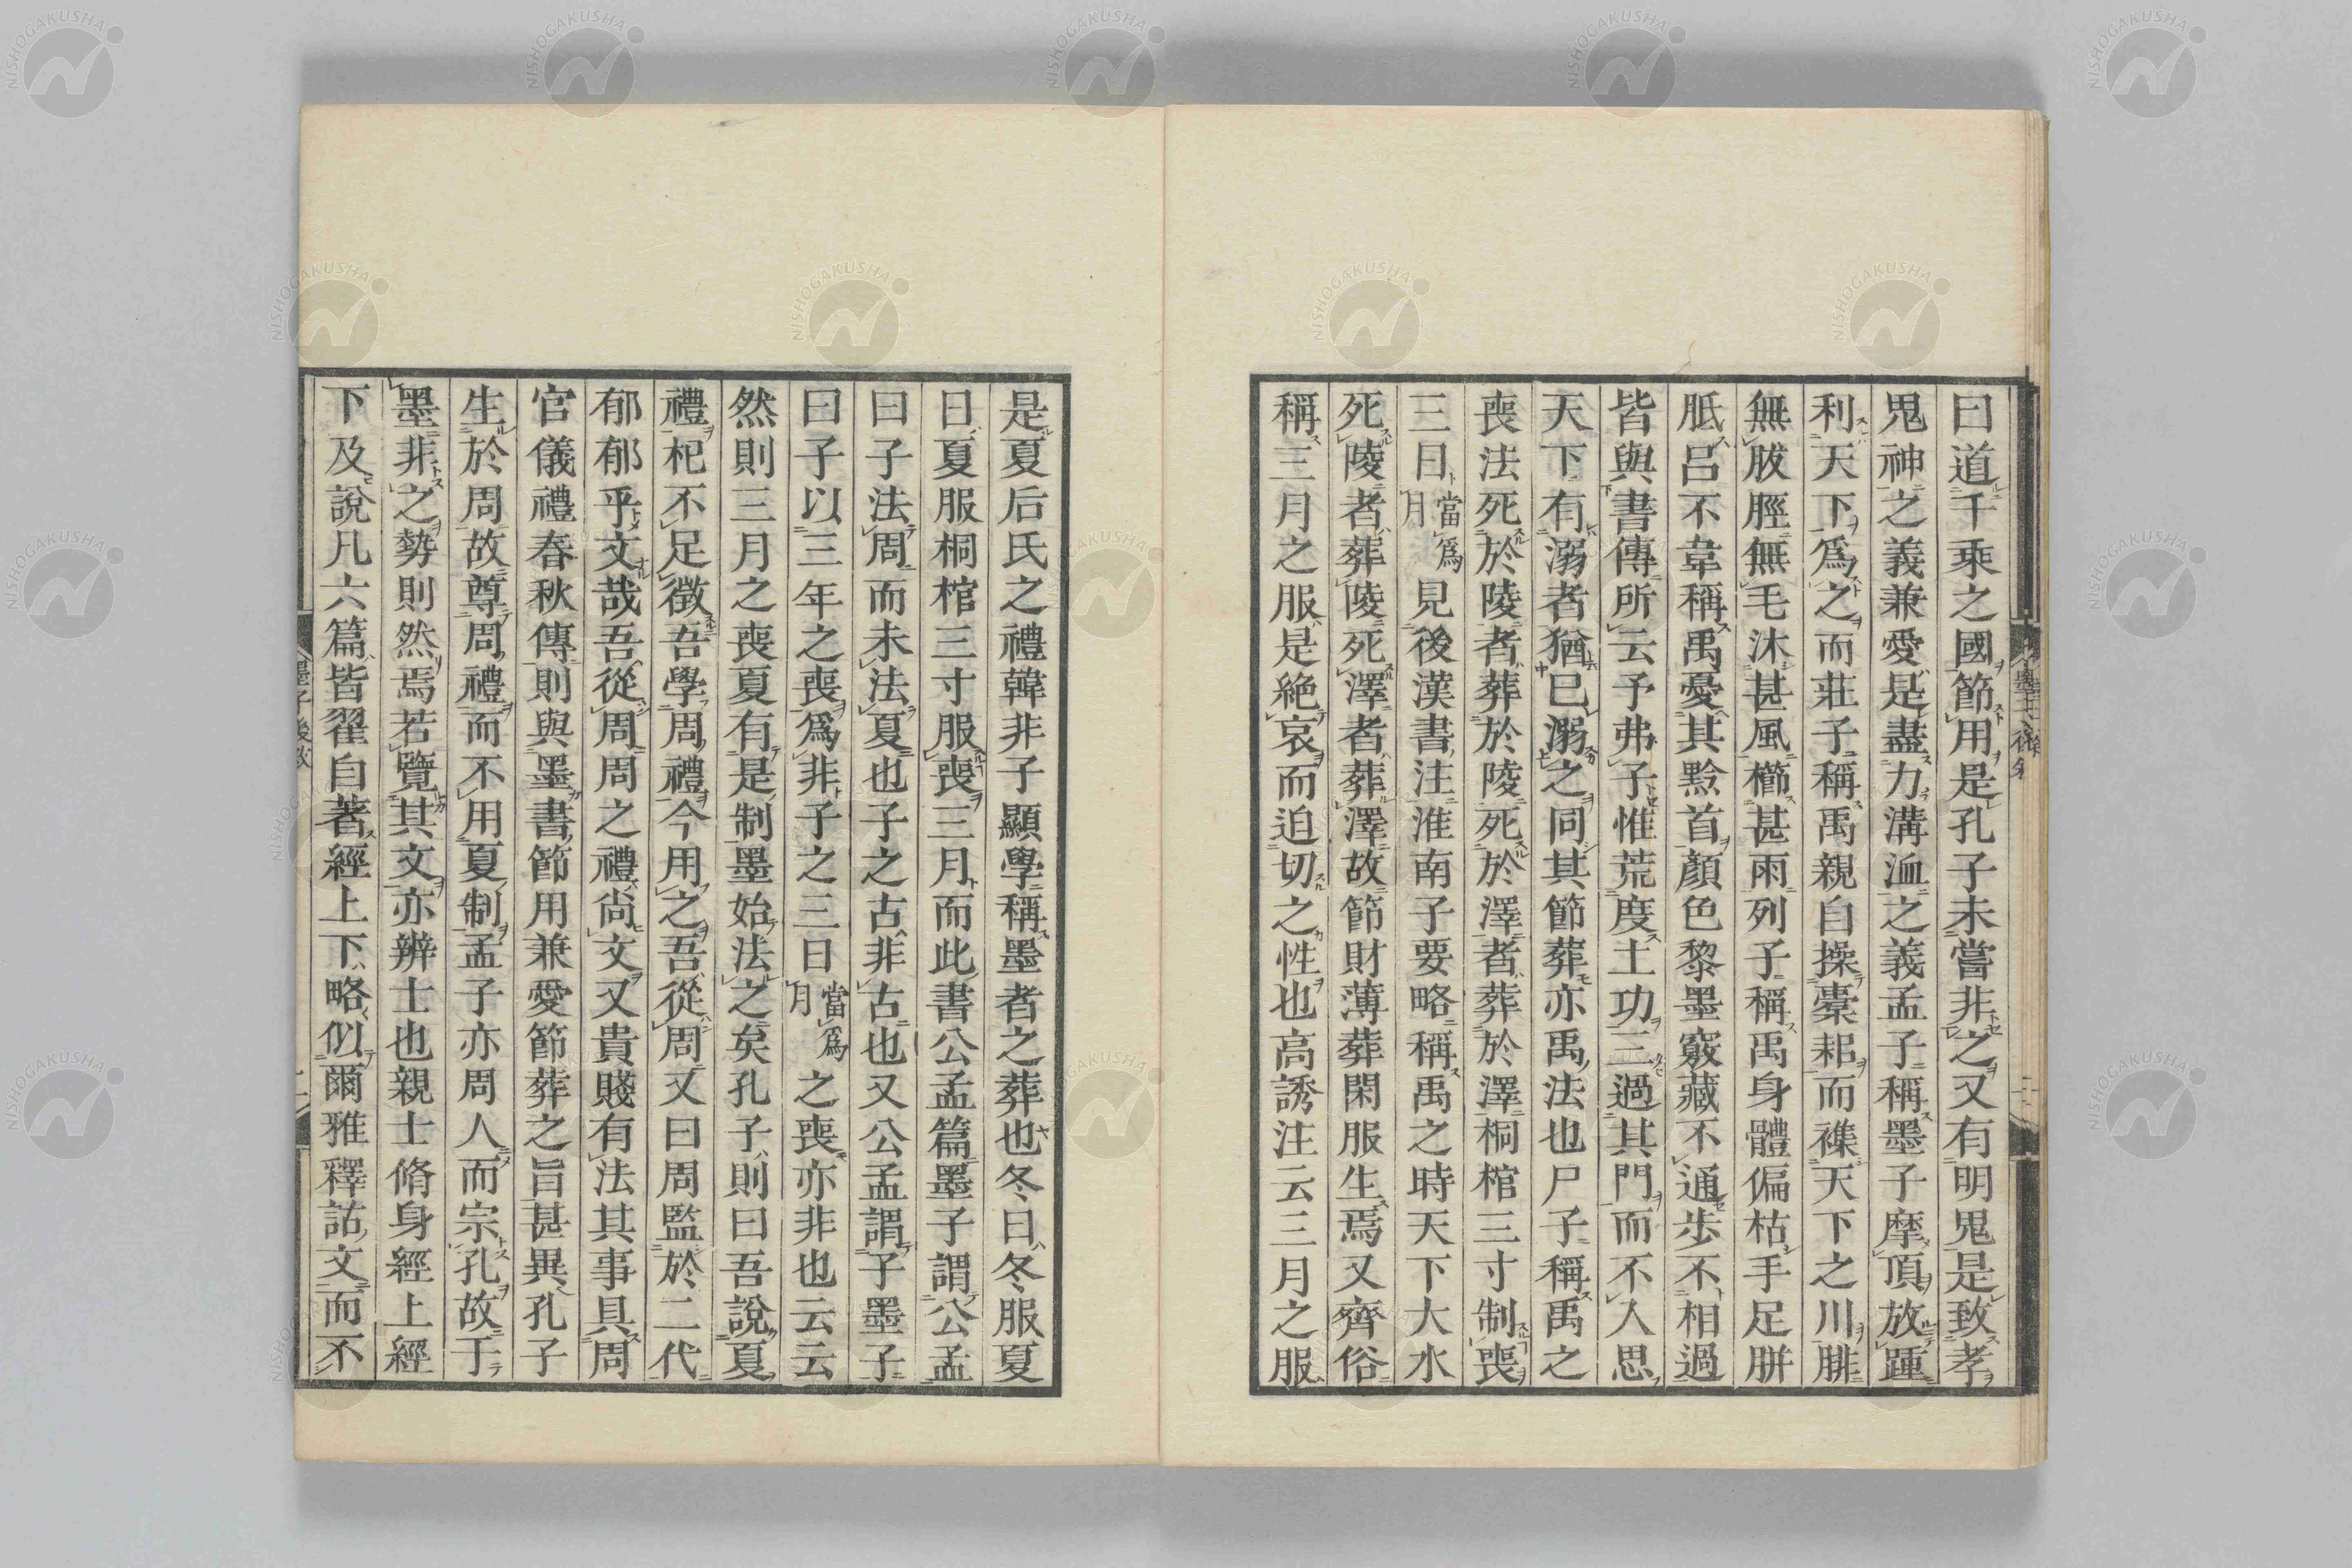 曰道千乘之國節用是孔子未嘗非之又有明鬼是致孝
鬼神之義兼愛是盡力溝洫之義孟子稱墨子摩頂放踵
利天下爲之而莊子稱禹親自操橐耜而襍天下之川腓
無胈脛無毛沐甚風櫛甚雨列子稱禹身體偏枯手足胼
胝呂不韋稱禹憂其黔首顏色黎墨竅藏不通步不相過
皆與書傳所云予弗子惟荒度土功三過其門而不入思
天下有溺者猶已溺之同其節葬亦禹法也尸子稱禹之
喪法死於陵者葬於陵死於澤者葬於澤桐棺三寸制喪
三日當爲月見後漢書注淮南子要略稱禹之時天下大水
死陵者葬陵死澤者葬澤故節財薄葬閑服生焉又齊俗
稱三月之服是絕哀而迫切之性也高誘注云三月之服
是夏后氏之禮韓非子顯學稱墨者之葬也冬日冬服夏
日夏服桐棺三寸服喪三月而此書公孟篇墨子謂公孟
曰子法周而未法夏也子之古非古也又公孟謂子墨子
曰子以三年之喪爲非子之三日當爲月之喪亦非也云云
然則三月之喪夏有是制墨始法之矣孔子則曰吾說夏
禮杞不足徵吾學周禮今用之吾從周又曰周監於二代
郁郁乎文哉吾從周周之禮尚文又貴賤有法其事具周
官儀禮春秋傳則與墨書節用兼愛節葬之旨甚異孔子
生於周故尊周禮而不用夏制孟子亦周人而宗孔故于
墨非之勢則然焉若覽其文亦辨士也親士脩身經上經
下及說凡六篇皆翟自著經上下略似爾雅釋詁文而不
墨子後敘
NISHOGAKUSHA